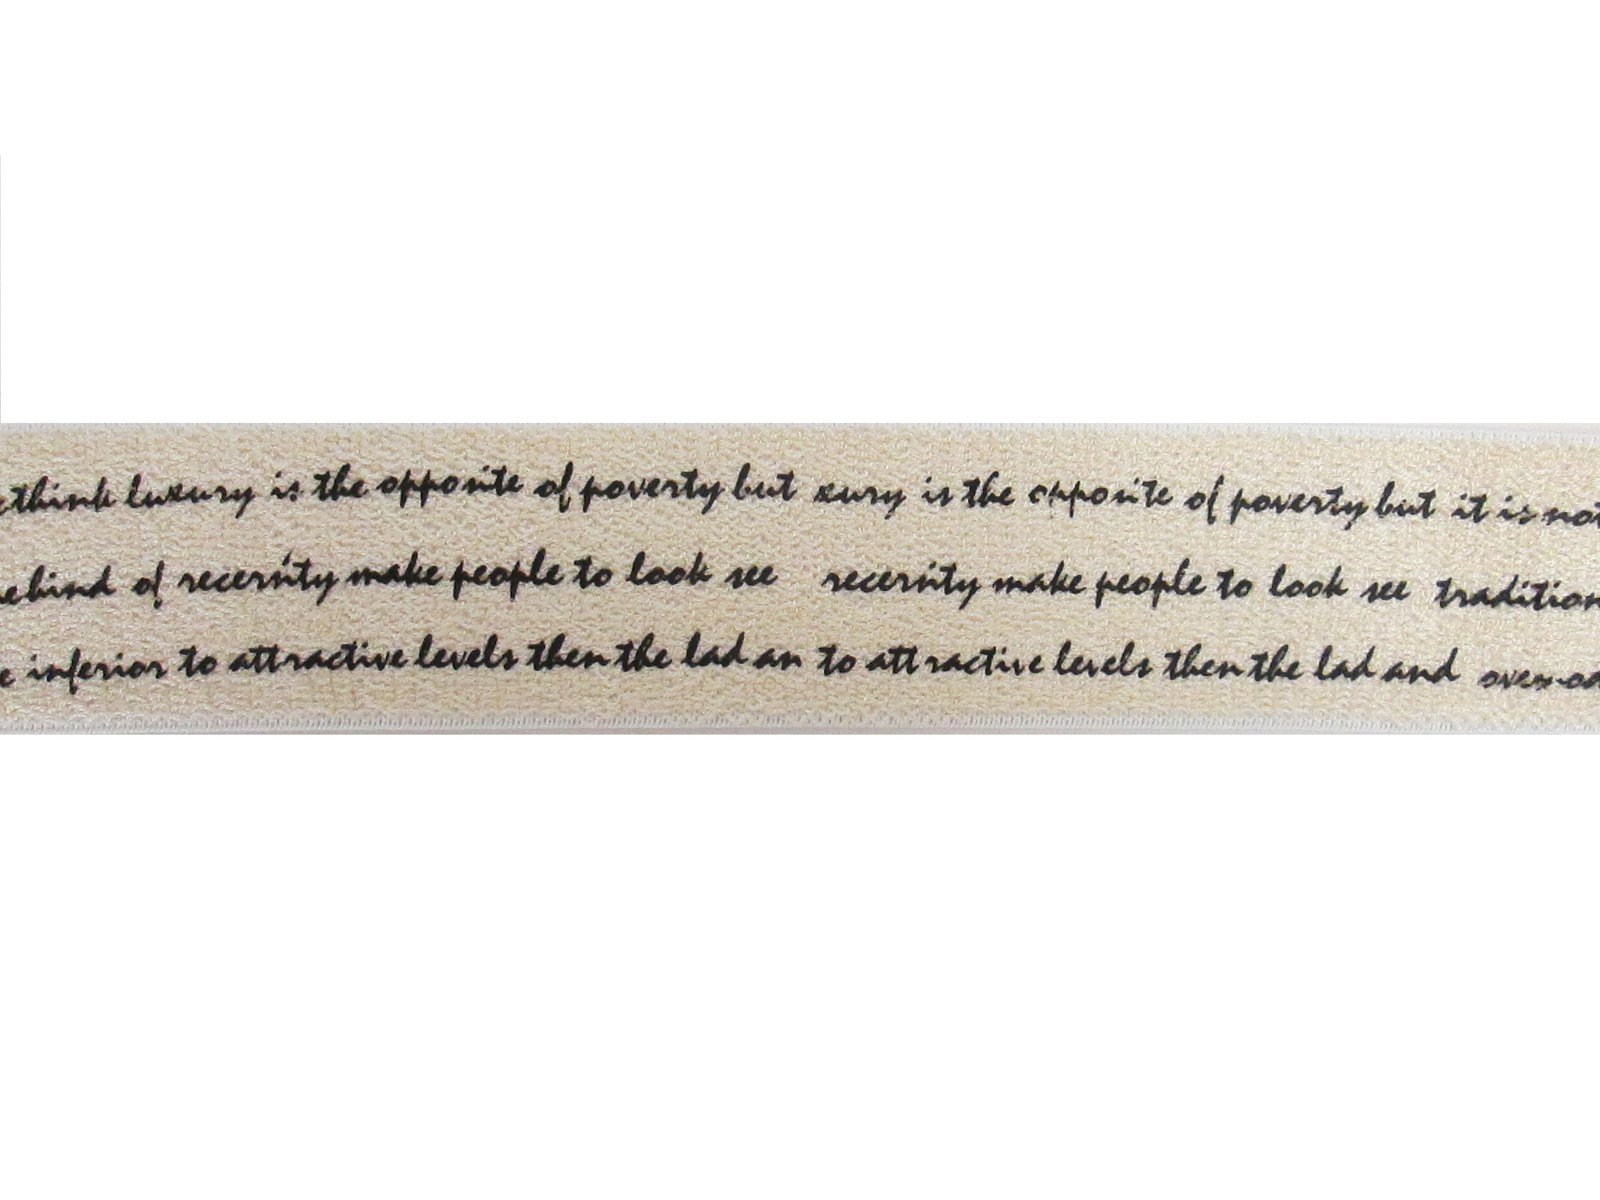 think luxury is the opposite of poverty but xury is the opposite of poverty but it is not
ebind of recersity make people to look see recersity make people to look see tradition
e inferior to attractive levels then the lad an to attractive levels then the lad and